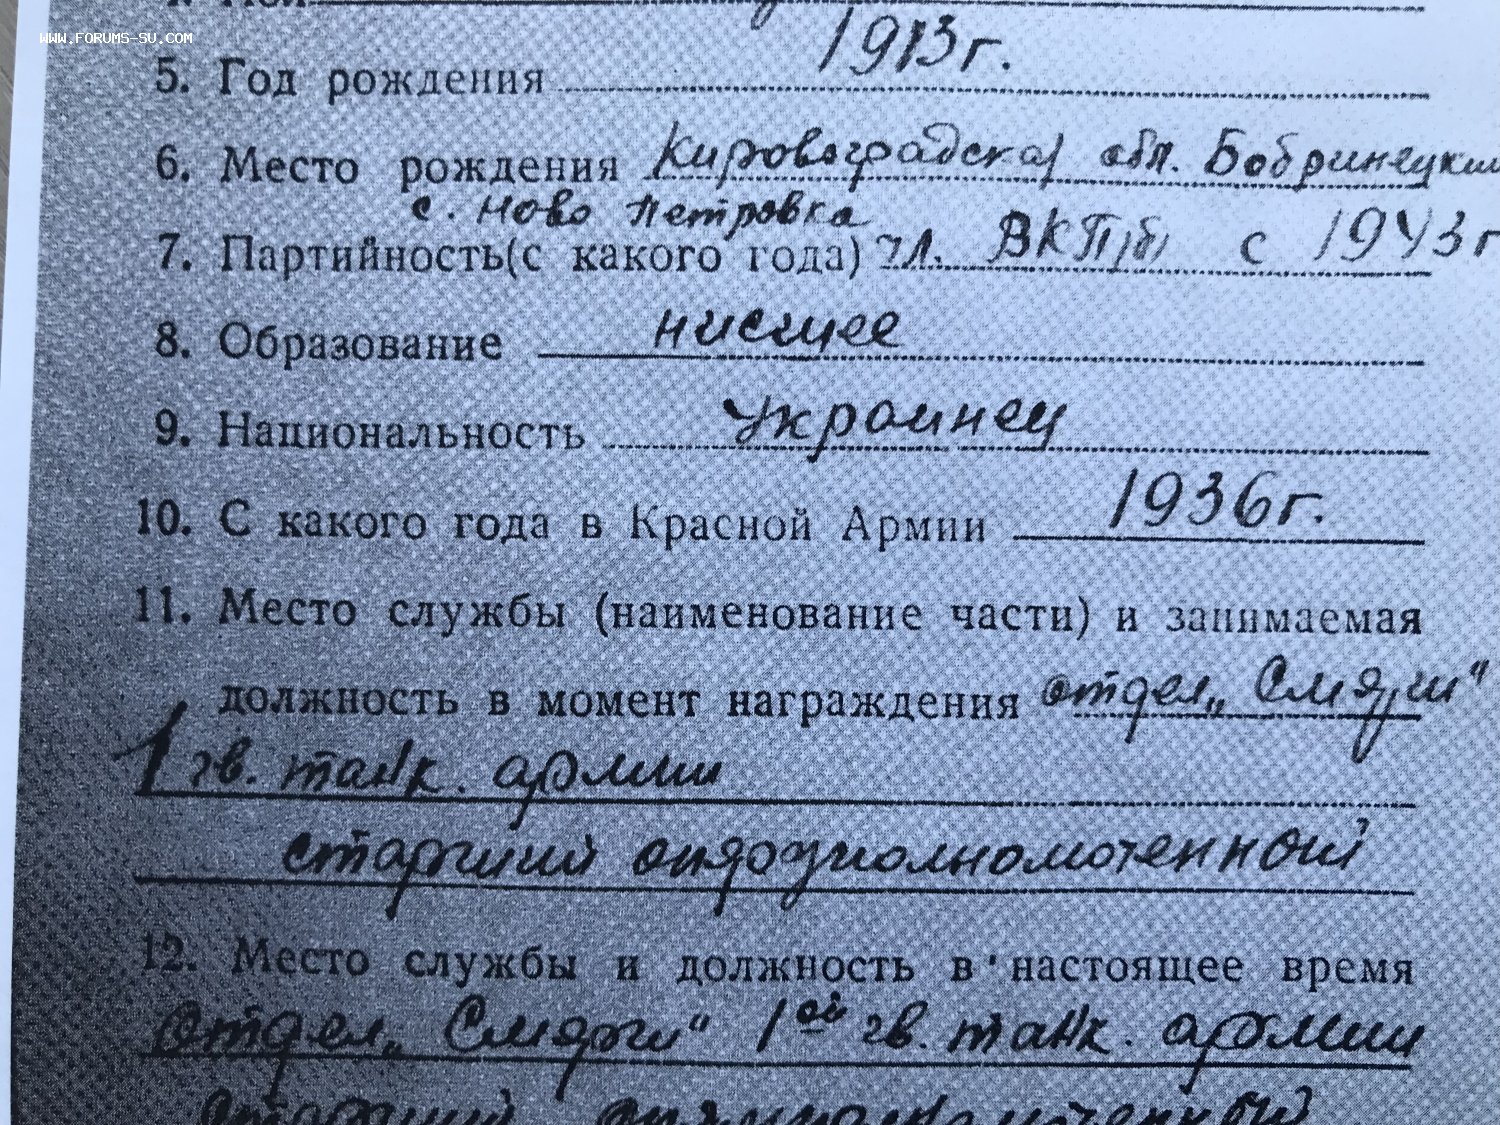 WWW.FORUMS-SU.COM
5. Год рождения 1913г.
6. Место рождения Кировоградская обл. Бобринецкий
с. Ново Петровка
7. Партийность(с какого года) чл. ВКП/б/ с 1943г
8. Образование нисшее
9. Национальность Украинец
10. С какого года в Красной Армии 1936г.
11. Место службы (наименование части) и занимаемая
должность в момент награждения отдел „Смерш"
1 гв. танк. армии
старший оперуполномоченный
12. Место службы и должность в настоящее время
Отдел „Смерш" 1ой гв. танк. армии
старший оперуполномоченный